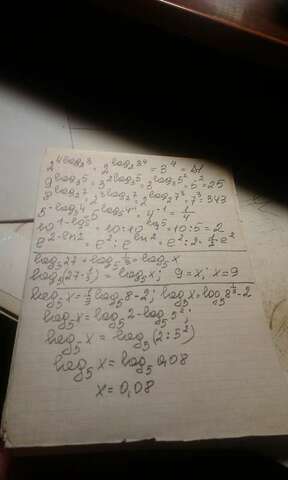 2^{4log_2 3} = 2^{log_2 3^4} = 3^4 = 81
9^{log_3 5} = 3^{2log_3 5} = 3^{log_3 5^2} = 5^2 = 25
8^{log_2 7} = 2^{3log_2 7} = 2^{log_2 7^3} = 7^3 = 343
5^{-log_5 4} = 5^{log_5 4^{-1}} = 4^{-1} = 1/4
10^{1-log 5} = 10 : 10^{log 5} = 10 : 5 = 2
e^{2-ln2} = e^2 : e^{ln2} = e^2 : 2 = 1/2 e^2
log_5 27 + log_5 1/3 = log_5 x
log_5 (27 · 1/3) = log_5 x; 9 = x; x = 9
log_5 x = 1/3 log_5 8 - 2; log_5 x = log_5 8^{1/3} - 2
log_5 x = log_5 2 - log_5 5^2;
log_5 x = log_5 (2 : 5^2)
log_5 x = log_5 0,08
x = 0,08